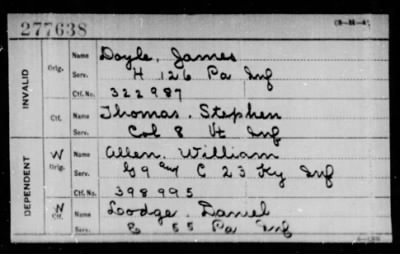 277638
INVALID
Orig.
Name Doyle, James
Serv. H 126 Pa Inf
Ctf. No. 322987
Ctf.
Name Thomas, Stephen
Serv. Col 8 Vt Inf
DEPENDENT
W
Orig.
Name Allen, William
Serv. C 23 Ky Inf
Ctf. No. 398995
W
Ctf.
Name Lodge, Daniel
Serv. 55 Pa Inf